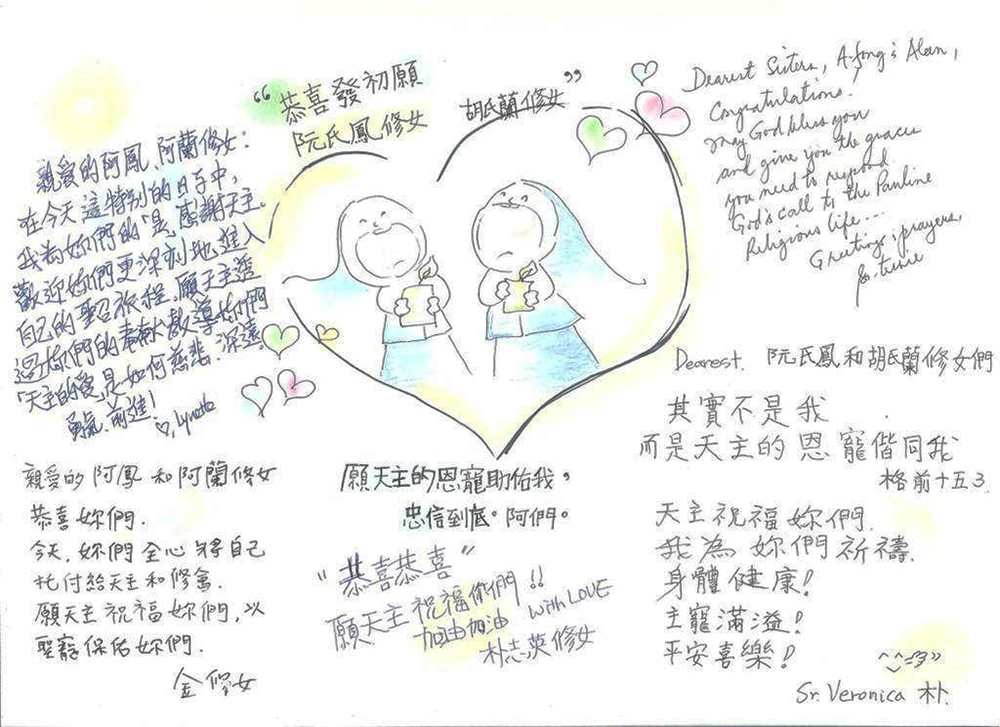 “恭喜發初願
阮氏鳳修女
胡氏蘭修女”
Dearest Sisters, A-fong & Alan,
Congratulations!
May God bless you
and give you the graces
you need to respond
God's call to the Pauline
Religious life...
Greetings & prayers,
親愛的阿鳳、阿蘭修女：
在今天這特別的日子中，
我為妳們的「是」感謝天主。
歡迎妳們更深刻地進入
自己的聖召旅程。願天主透
過妳們的奉獻教導妳們
「天主的愛」是如何慈悲、深遠。
勇氣、前進！
♡, Lynetta
Dearest. 阮氏鳳和胡氏蘭修女們
其實不是我
而是天主的恩寵偕同我
格前十五3.
天主祝福妳們.
我為妳們祈禱.
身體健康!
主寵滿溢!
平安喜樂!
Sr. Veronica 朴.
親愛的阿鳳和阿蘭修女
恭喜妳們.
今天,妳們全心將自己
托付給天主和修會.
願天主祝福妳們,以
聖寵保佑妳們.
金修女
願天主的恩寵助佑我，
忠信到底。阿們。
“恭喜恭喜”
願天主祝福你們!!
加油加油 with LOVE
朴志英修女